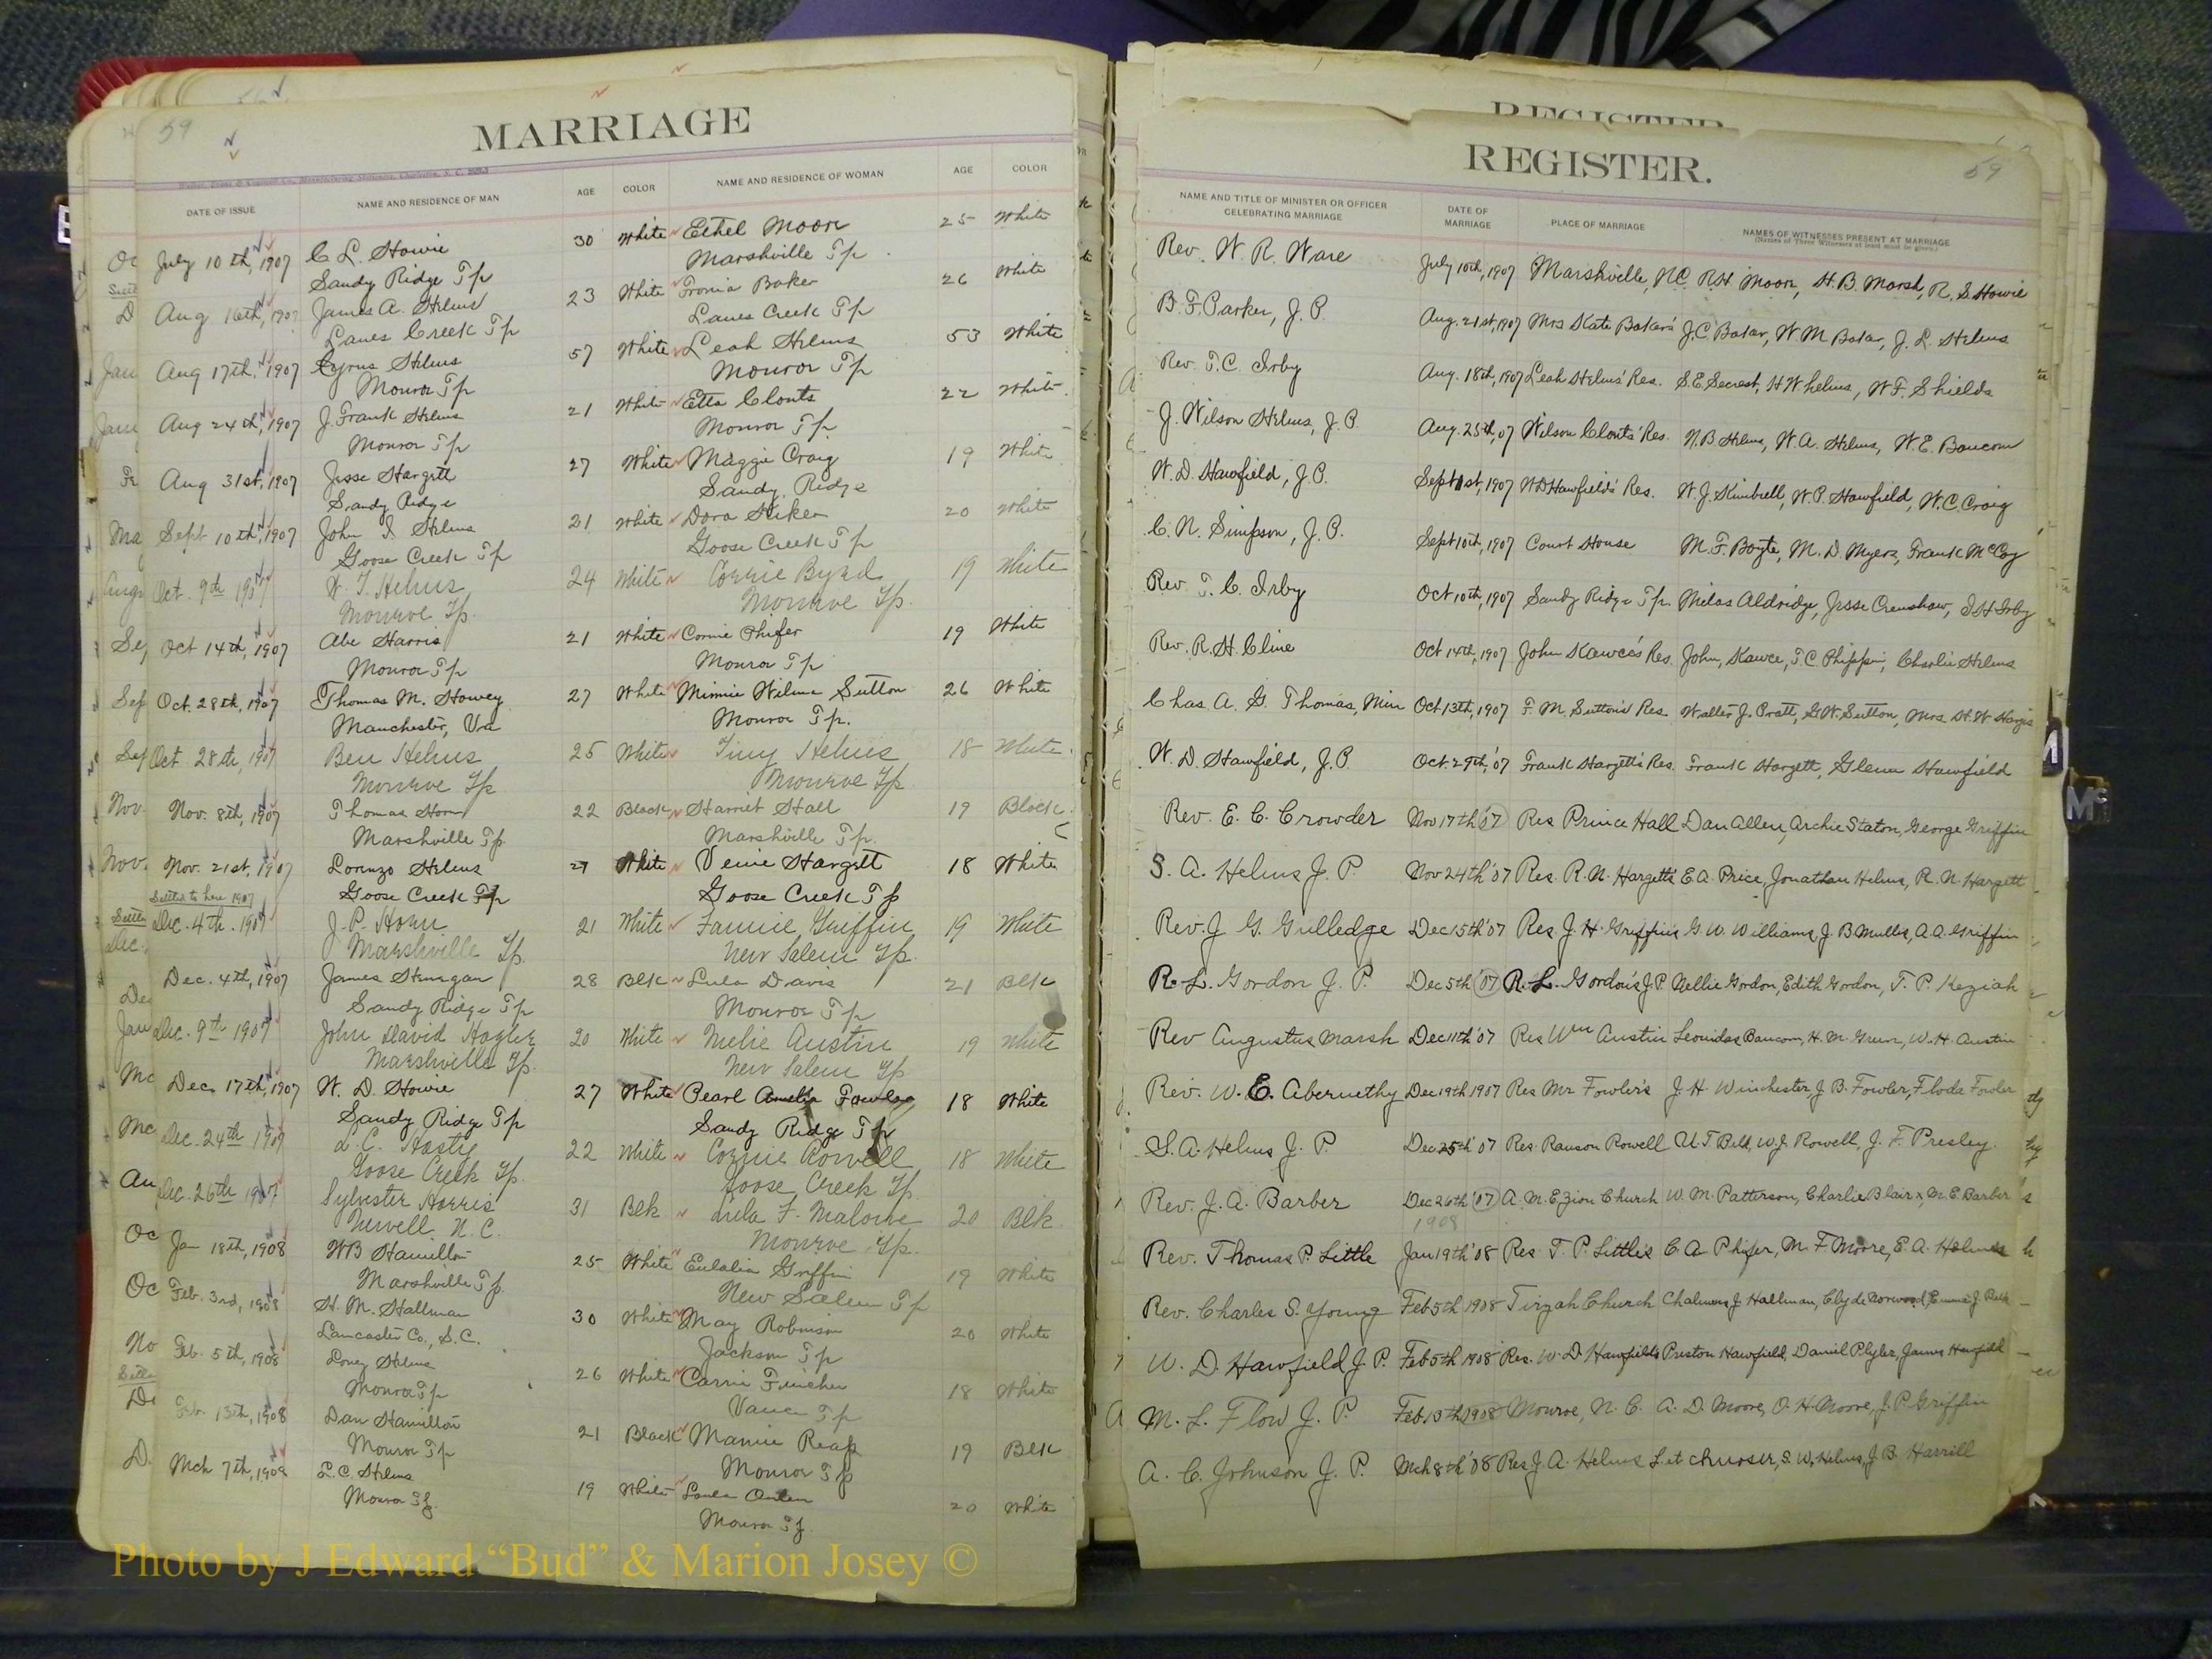 59
MARRIAGE
DATE OF ISSUE NAME AND RESIDENCE OF MAN AGE COLOR NAME AND RESIDENCE OF WOMAN AGE COLOR
July 10th, 1907 C. L. Howie 30 White Ethel Moore 25 White
Sandy Ridge Tp Marshville Tp
Aug 16th, 1907 James A. Helms 23 White Fronia Baker 26 White
Lanes Creek Tp Lanes Creek Tp
Aug 17th, 1907 Cyrus Helms 57 White Leah Helms 53 White
Monroe Tp Monroe Tp
Aug 24th, 1907 J. Frank Helms 21 White Etta Clonts 22 White
Monroe Tp Monroe Tp
Aug 31st, 1907 Jesse Hargett 27 White Maggie Craig 19 White
Sandy Ridge Sandy Ridge
Sept 10th, 1907 John I. Helms 21 White Dora 20 White
Goose Creek Tp Goose Creek Tp
Oct. 9th 1907 W. T. Helms 24 White Corrie Byrd 19 White
Monroe Tp. Monroe Tp
Oct 14th, 1907 Abe Harris 21 White Connie Phifer 19 White
Monroe Tp Monroe Tp
Oct. 28th, 1907 Thomas M. 27 White Minnie Wilma Sutton 26 White
Manchester, Va Monroe Tp.
Oct 28th, 1907 Ben Helms 25 White Tiny Helms 18 White
Monroe Tp Monroe Tp
Nov. 8th, 1907 Thomas Horn 22 Black Harriet Hall 19 Black
Marshville Tp Marshville Tp.
Nov. 21st, 1907 Lorenzo Helms 21 White Venie Hargett 18 White
Settled to here 1907 Goose Creek Tp Goose Creek Tp
Dec. 4th. 1907 J. P. Horn 21 White Fannie Griffin 19 White
Marshville Tp. New Salem Tp.
Dec. 4th, 1907 James 28 Blk Lula Davis 21 Blk
Sandy Ridge Tp Monroe Tp
Dec. 9th 1907 John David Hagler 20 White Melie Austin 19 White
Marshville Tp. New Salem Tp
Dec. 17th, 1907 W. D. Howie 27 White Pearl Amelia Fowler 18 White
Sandy Ridge Tp Sandy Ridge Tp
Dec. 24th 1907 L. C. Hasty 22 White Connie Rowell 18 White
Goose Creek Tp. Goose Creek Tp.
Dec. 26th 1907 Sylvester Harris 31 Blk Lula F. Malone 20 Blk
Newell N. C. Monroe Tp.
Jan 18th, 1908 W B Hamilton 25 White Eulalia Griffin 19 White
Marshville Tp. New Salem Tp
Feb. 3rd, 1908 H. M. Hallman 30 White May Robinson 20 White
Lancaster Co., S.C. Jackson Tp
Feb. 5th, 1908 Loney Helms 26 White Carrie Fincher 18 White
Monroe Tp Vance Tp
Feb. 13th, 1908 Dan Hamilton 21 Black Mamie Reap 19 Blk
Monroe Tp Monroe Tp
Mch 7th, 1908 L. C. Helms 19 White Lula Outen 20 White
Monroe Tp. Monroe Tp.
REGISTER
REGISTER.
59
NAME AND TITLE OF MINISTER OR OFFICER CELEBRATING MARRIAGE DATE OF MARRIAGE PLACE OF MARRIAGE NAMES OF WITNESSES PRESENT AT MARRIAGE
(Names of Three Witnesses at least must be given.)
Rev. W. R. Ware July 10th, 1907 Marshville, N.C. R.H. Moore, H. B. Marsh, R. S. Howie
B. F. Parker, J. P. Aug. 21st, 1907 Mrs Kate Baker's J. C. Baker, W. M. Baker, J. L. Helms
Rev. T. C. Irby Aug. 18th, 1907 Leah Helms' Res. S. E. Secrest, H W helms, W. F. Shields
J. Wilson Helms, J. P. Aug. 25th, 07 Wilson Clonts' Res. N. B Helms, W. A. Helms, W. E. Baucom
W. D. Hawfield, J. P. Sept 1st, 1907 W D Hawfield's Res. W. J. Kimbrell, W. P. Hawfield, W. C. Craig
C. N. Simpson, J. P. Sept 10th, 1907 Court House M. F. Boyte, M. D. Myers, Frank McCoy
Rev. T. C. Irby Oct 10th, 1907 Sandy Ridge Tp. Milas Aldridge, Jesse Crenshaw, I H Irby
Rev. R. H. Cline Oct 14th, 1907 John Res. John T. C. Charlie Helms
Chas A. G. Thomas, Min Oct 13th, 1907 F. M. Sutton's Res. Walter J. Pratt, G. W. Sutton, Mrs H. W
W. D. Hawfield, J. P. Oct 29th, '07 Frank Hargett's Res. Frank Hargett, Glenn Hawfield
Rev. E. C. Crowder Nov 17th '07 Res Prince Hall Dan Allen, Archie Staton, George Griffin
S. A. Helms J. P. Nov 24th '07 Res. R. N. Hargett's E. A. Price, Jonathan Helms, R. N. Hargett
Rev. J. G. Gulledge Dec 15th '07 Res. J. H. Griffin's G. W. Williams, J. B Mullis, A. A. Griffin
R. L. Gordon J. P. Dec 5th '07 R. L. Gordon's J.P. Nellie Gordon, Edith Gordon, T. P. Keziah
Rev Augustus Marsh Dec 11th '07 Res Wm Austin Leonidas Baucom, H. M. Green, W. H. Austin
Rev. W. E. Abernethy Dec 19th 1907 Res Mr Fowler's J. H Winchester, J. B. Fowler, Floda Fowler
S. A. Helms J. P. Dec 25th '07 Res. Ranson Rowell U. T Belk, W. J. Rowell, J. F. Presley.
Rev. J. A. Barber Dec 26th '07 A. M. E. Zion Church W. M. Patterson, Charlie Blair, M. E. Barber
1908
Rev. Thomas P. Little Jan 19th '08 Res. T. P. Little's C. A Phifer, M. F Moore, E. A. Helms
Rev. Charles S. Young Feb 5th 1908 Tirzah Church Chalmers J Hallman, Clyde Norwood, Emma J. Belk
W. D. Hawfield J. P. Feb 5th 1908 Res. W. D Hawfields Preston Hawfield, Daniel Plyler, James Hawfield
M. L. Flow J. P. Feb 13th 1908 Monroe, N. C. A. D. Moore, O. H. Moore, J. P. Griffin
A. C. Johnson J. P. Mch 8th '08 Res J. A. Helms S. W. Helms, J. B. Harrill
Photo by J Edward “Bud” & Marion Josey ©